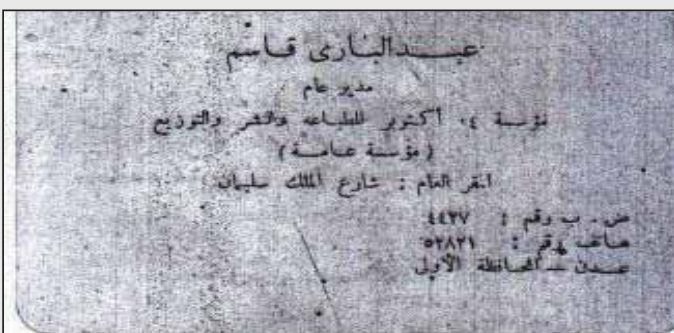 عبدالبارى قاسم
مدير عام
مؤسسة ١٤ أكتوبر للطباعه والنشر والتوزيع
(مؤسسة عامة)
المقر العام : شارع الملك سليمان
ص. ب رقم : ٤٤٢٧
هاتف رقم : ٥٢٨٢١
عدن - المحافظة الأولى